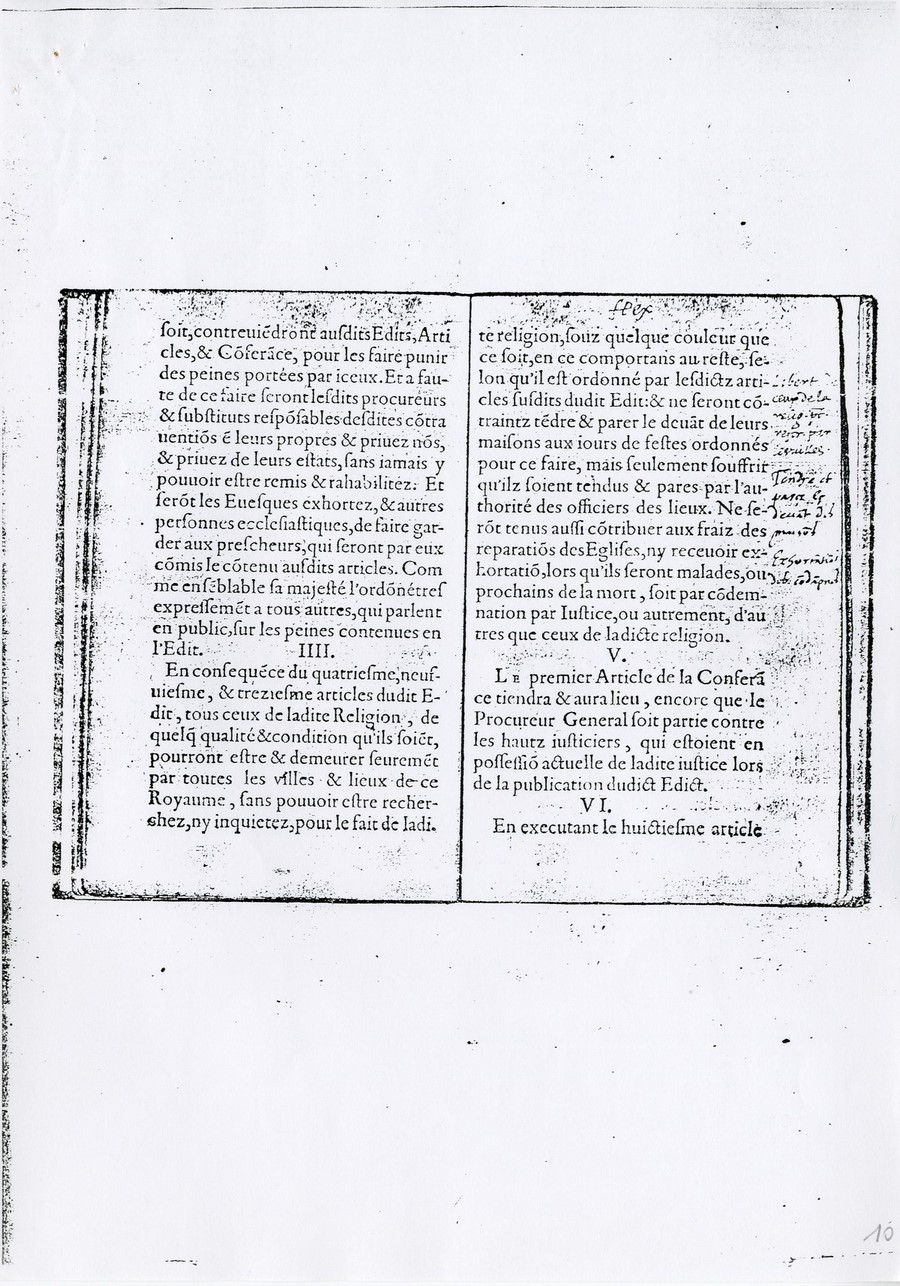 ſoit,contreuiẽdrõnt auſdits Edits,Arti
cles,& Cõferãce, pour les faire punir
des peines portées par iceux.Et a fau-
te de ce faire ſeront leſdits procureurs
& ſubſtituts reſpõſables deſdites cõtra
uentiõs ẽ leurs propres & priuez nõs,
& priuez de leurs eſtats,ſans iamais y
pouuoir eſtre remis & rahabilitéz. Et
ſerõt les Eueſques exhortez,& autres
perſonnes eccleſiaſtiques,de faire gar-
der aux preſcheurs,qui ſeront par eux
cõmis le cõtenu auſdits articles. Com
me enſẽblable ſa majeſté l'ordõne treſ
expreſſemẽt a tous autres,qui parlent
en public,ſur les peines contenues en
l'Edit.
IIII.
En conſequẽce du quatrieſme,neuf-
uieſme, & trezieſme articles dudit E-
dit, tous ceux de ladite Religion, de
quelq̃ qualité&condition qu'ils ſoiẽt,
pourront eſtre & demeurer ſeuremẽt
par toutes les villes & lieux de ce
Royaume, ſans pouuoir eſtre recher-
chez,ny inquietez,pour le fait de ladi.
te religion,ſouz quelque couleur que
ce ſoit,en ce comportans au reſte, ſe-
lon qu'il eſt ordonné par leſdictz arti-
cles ſuſdits dudit Edit:& ne ſeront cõ-
traintz tẽdre & parer le deuãt de leurs
maiſons aux iours de feſtes ordonnés
pour ce faire, mais ſeulement ſouffrir
qu'ilz ſoient tendus & pares par l'au-
thorité des officiers des lieux. Ne ſe-
rõt tenus auſſi cõtribuer aux fraiz des
reparatiõs des Egliſes,ny receuoir ex-
hortatiõ,lors qu'ils ſeront malades,ou
prochains de la mort, ſoit par cõdem-
nation par Iuſtice,ou autrement, d'au
tres que ceux de ladicte religion.
V.
LE premier Article de la Conferã
ce tiendra & aura lieu, encore que le
Procureur General ſoit partie contre
les hautz iuſticiers, qui eſtoient en
poſſeſſiõ actuelle de ladite iuſtice lors
de la publication dudict Edict.
VI.
En executant le huictieſme article
10